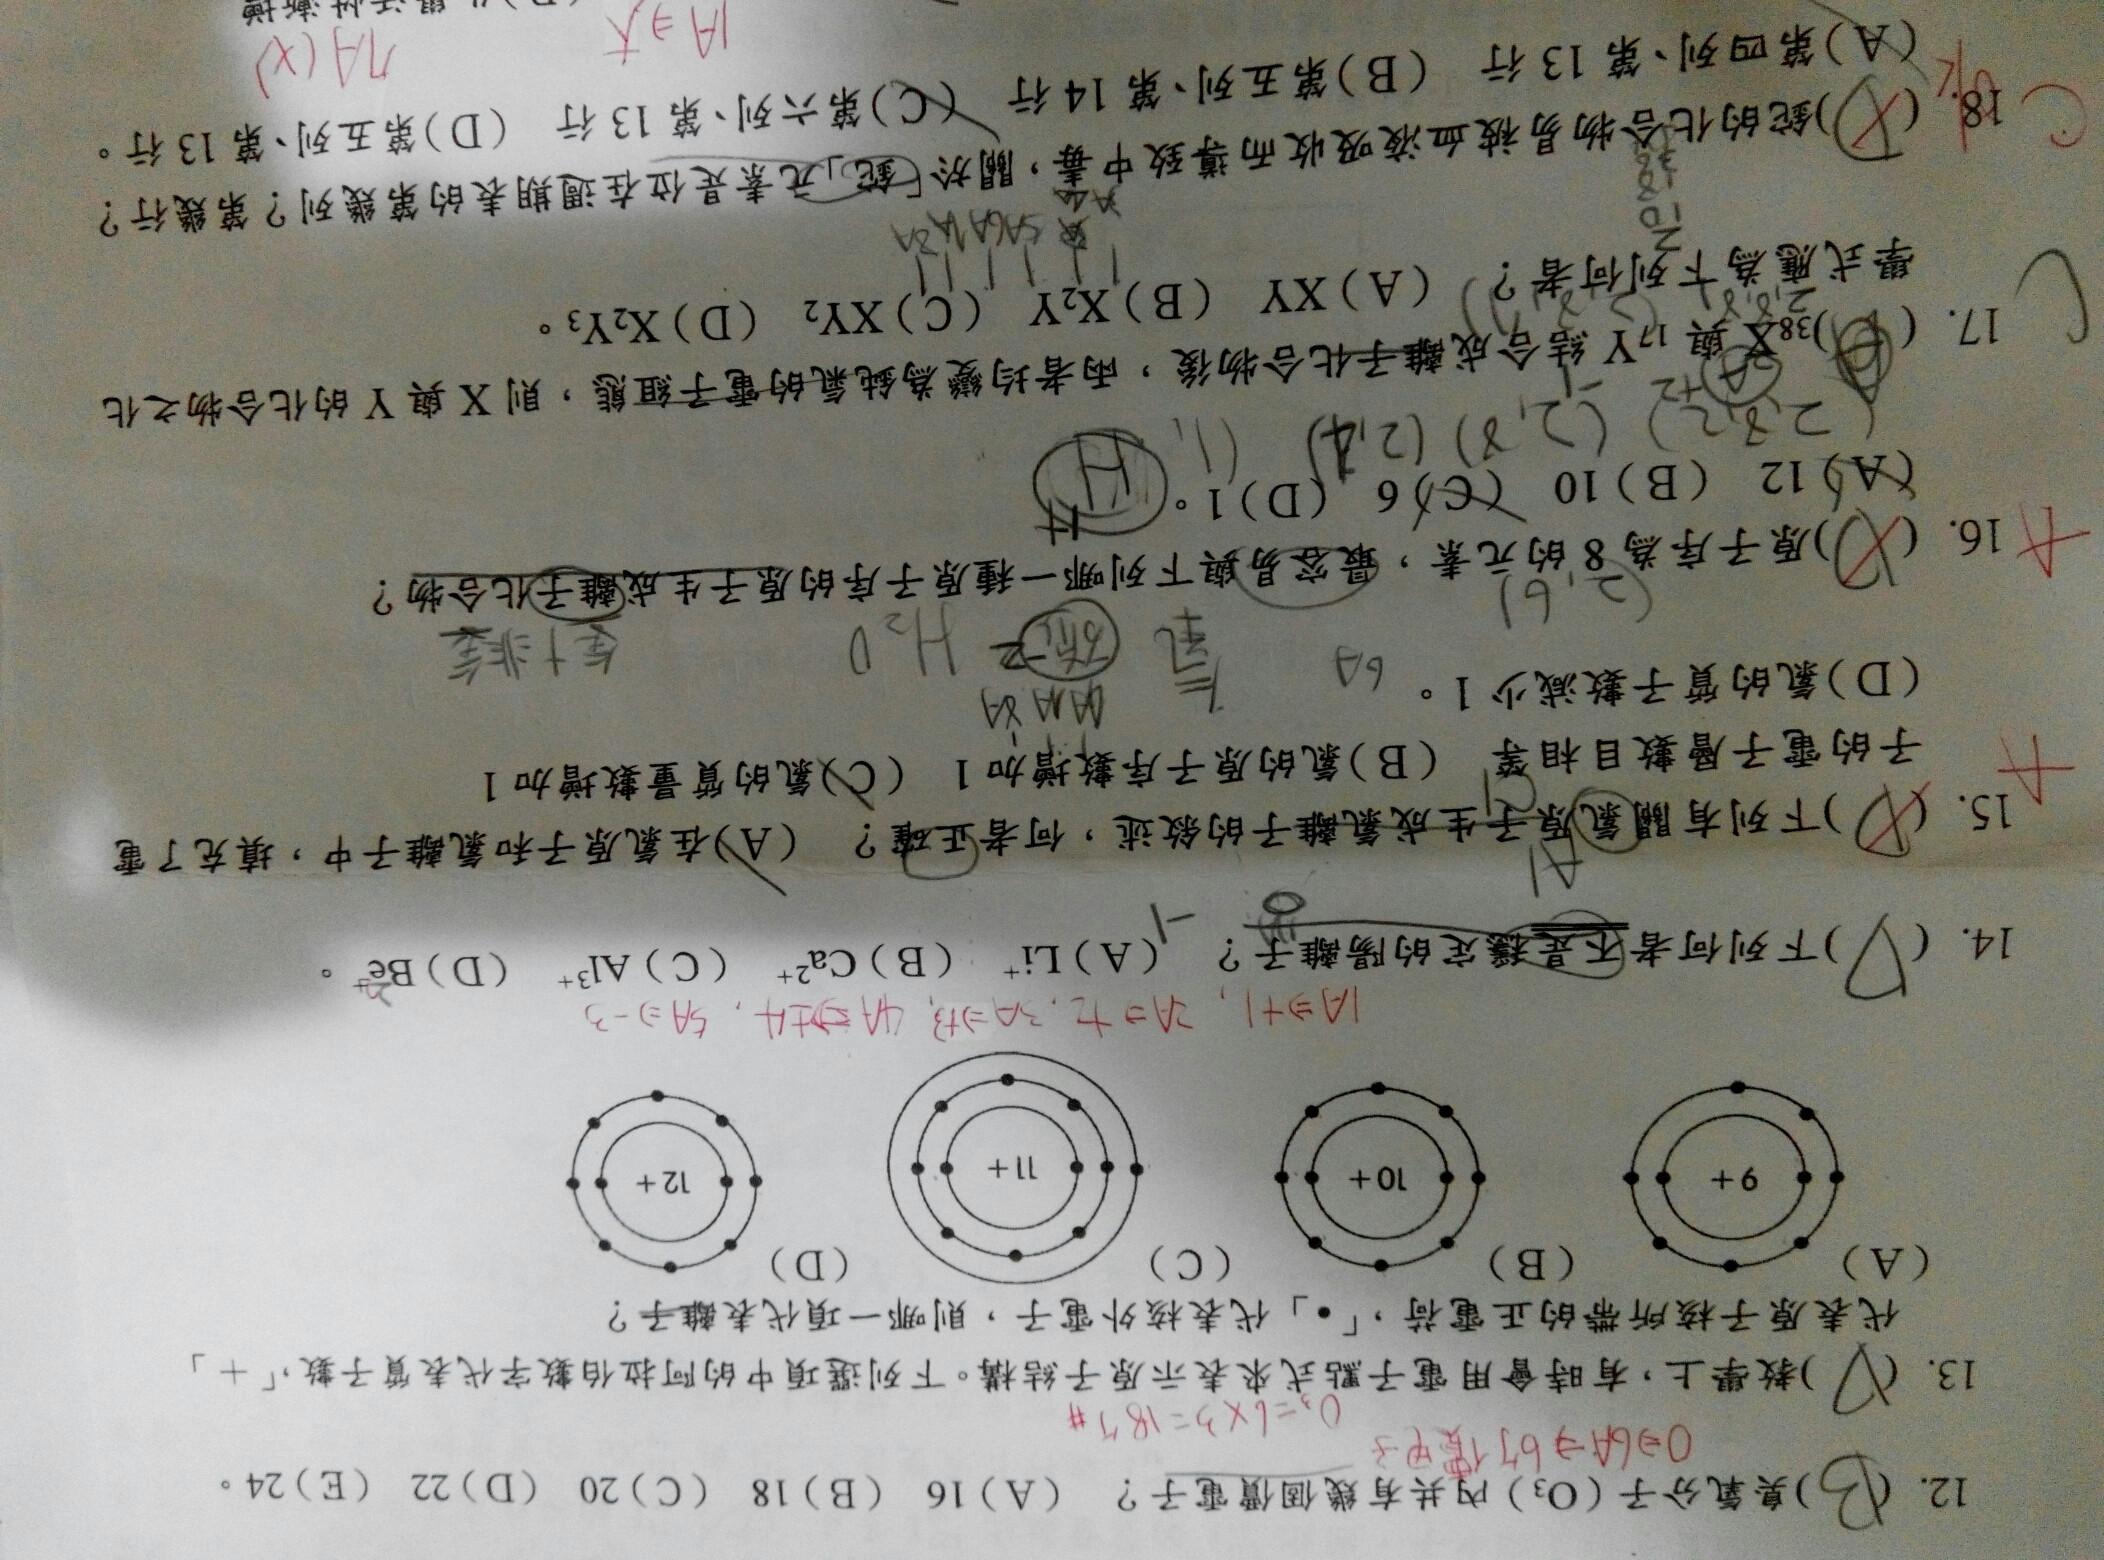 12. ( B )臭氧分子(O₃)內共有幾個價電子? (A)16 (B)18 (C)20 (D)22 (E)24。
O⇒6A⇒6個價電子
O₃=6×3=18個#
13. ( D )教學上,有時會用電子點式來表示原子結構。下列選項中的阿拉伯數字代表質子數,「+」
代表原子核所帶的正電荷,「•」代表核外電子,則哪一項代表離子?
(A) 9+ (B) 10+ (C) 11+ (D) 12+
1A⇒+1, 2A⇒+2, 3A⇒+3, 4A⇒±4, 5A⇒-3
14. ( D )下列何者不是穩定的陽離子? (A)Li⁺ (B)Ca²⁺ (C)Al³⁺ (D)Be⁺。
-1
15. ( )下列有關氯原子生成氯離子的敘述,何者正確? (A)在氯原子和氯離子中,填充了電
A
Cl
子的電子層數目相等 (B)氯的原子序數增加1 (C)氯的質量數增加1
(D)氯的質子數減少1。
6A
H₂O
金+非金
(2,6)
16. ( )原子序為8的元素,最容易與下列哪一種原子序的原子生成離子化合物?
A
(A)12 (B)10 (C)6 (D)1。
H
(2,8,2) (2,8) (2,4) (1,
17. ( )³⁸X與¹⁷Y結合成離子化合物後,兩者均變為鈍氣的電子組態,則X與Y的化合物之化
C
學式應為下列何者? (A)XY (B)X₂Y (C)XY₂ (D)X₂Y₃。
5A 6A 7A 8A
18. ( )鉈的化合物易被血液吸收而導致中毒,關於「鉈」元素是位在週期表的第幾列?第幾行?
C
(A)第四列、第13行 (B)第五列、第14行 (C)第六列、第13行 (D)第五列、第13行。
1A⇒大
7A(x)